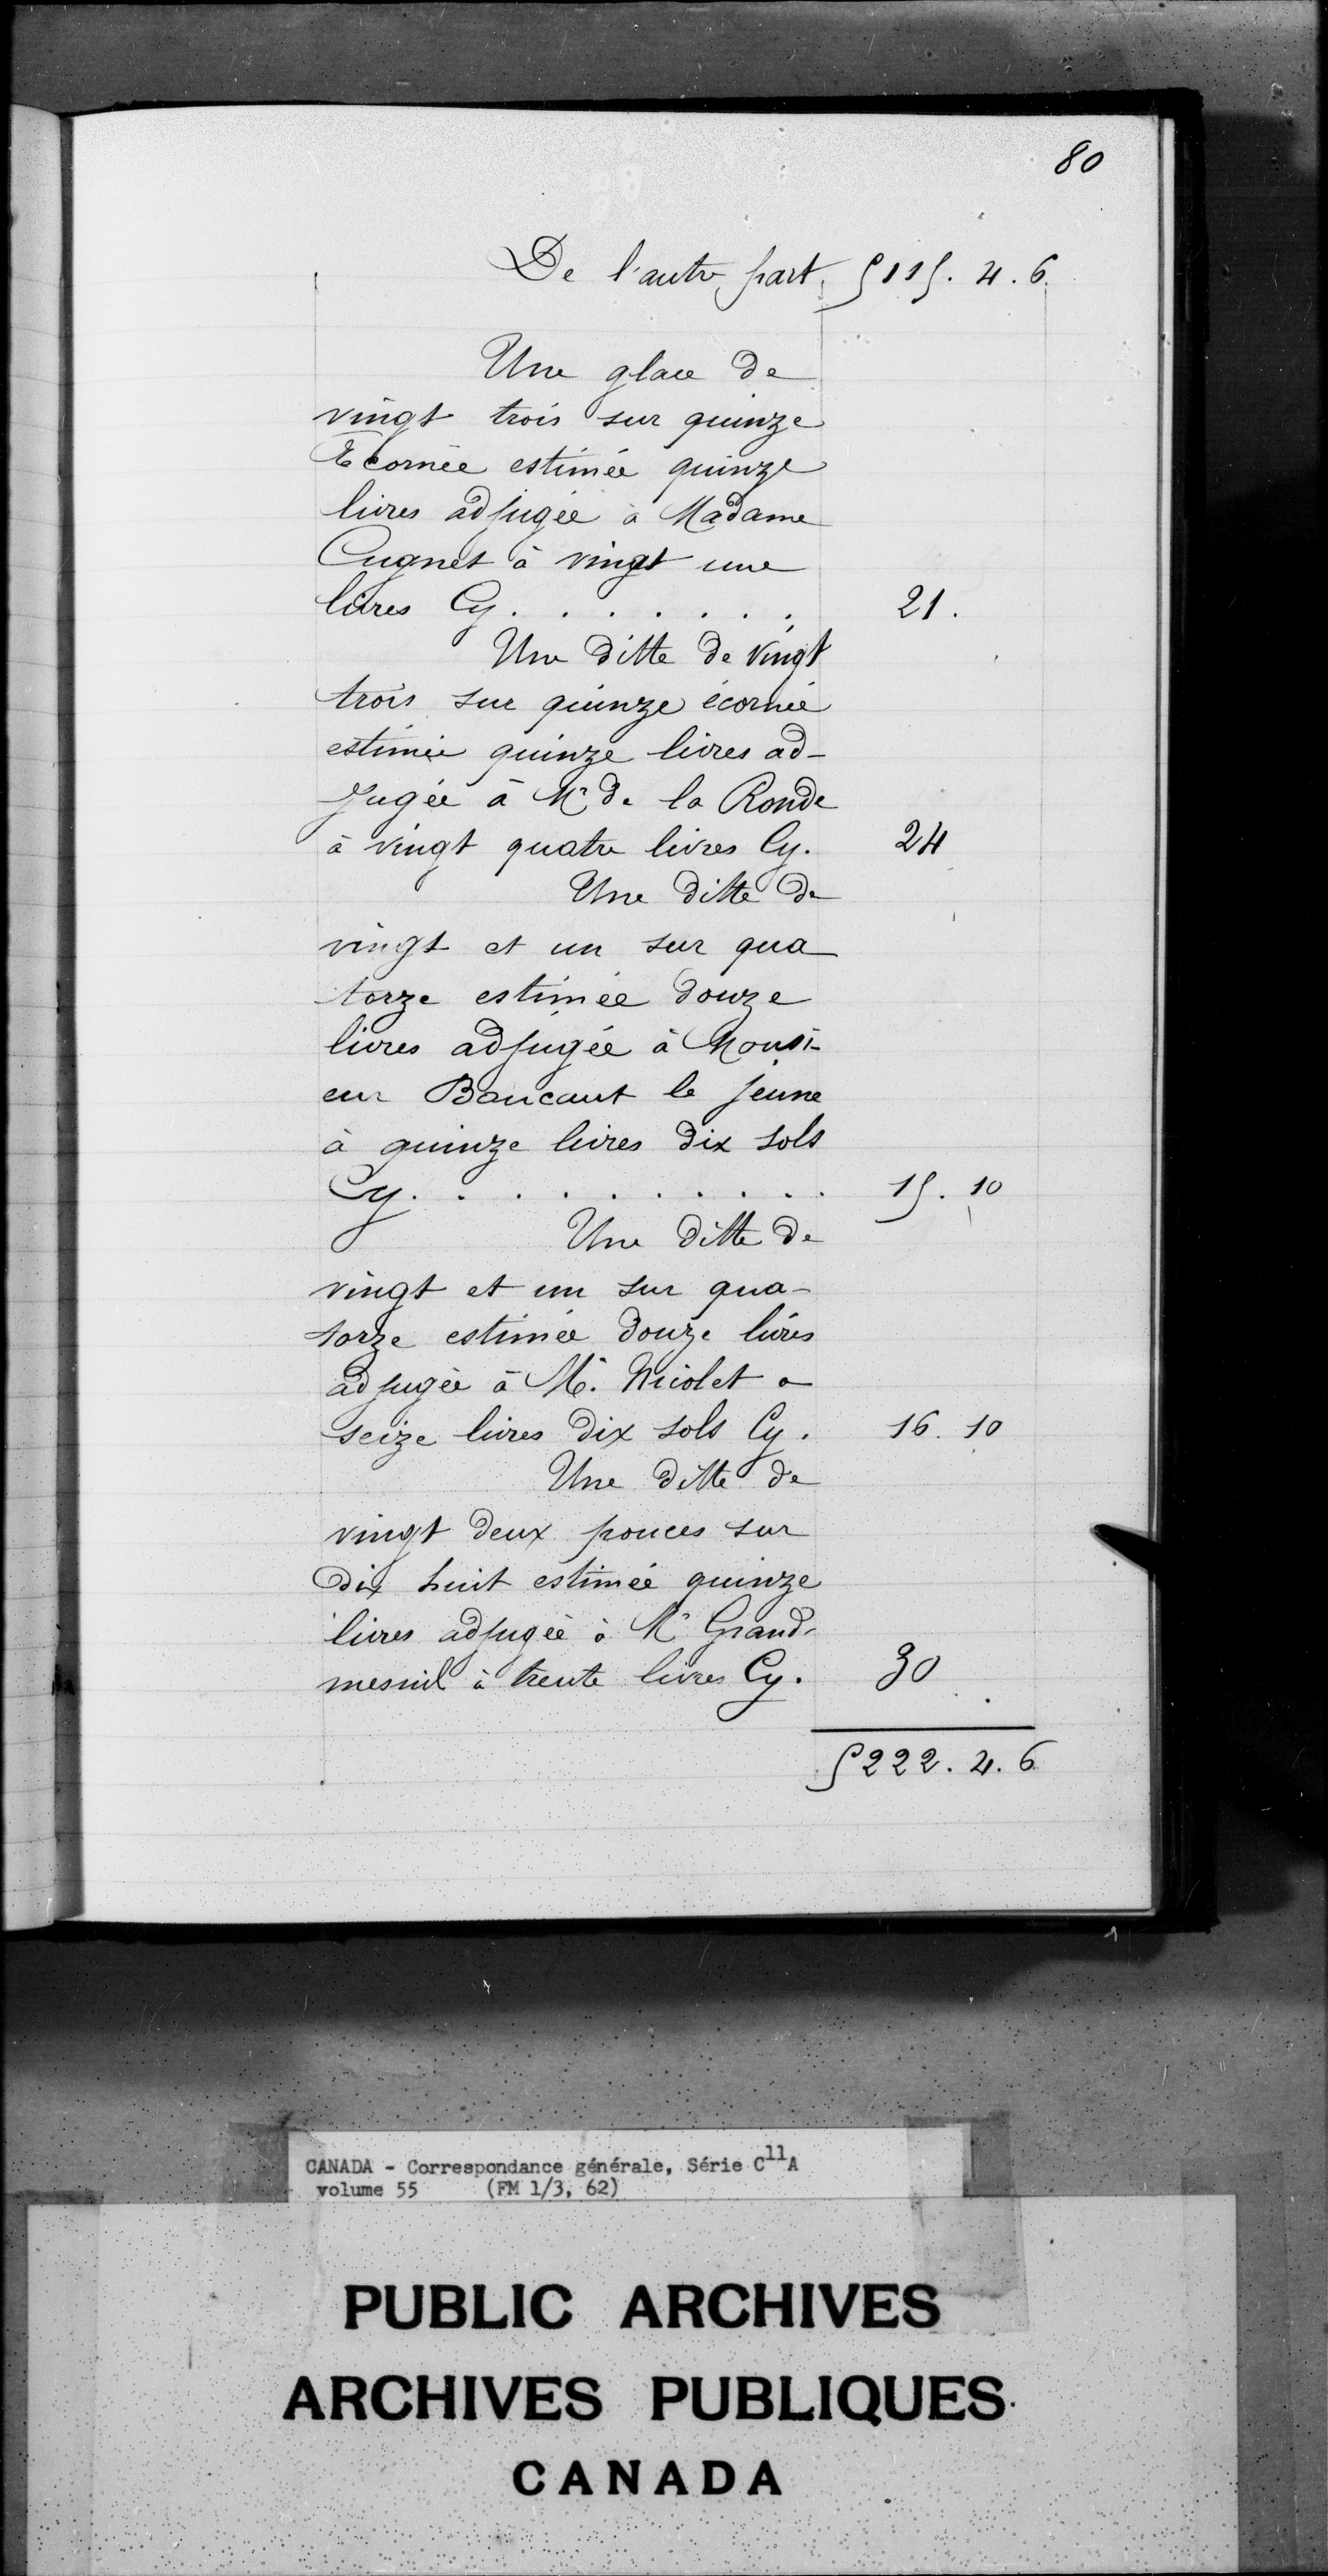 80
De l'autre part. ƒ 115. 4. 6.
Une glace de
vingt trois sur quinze
Ecornée estimée quinze
livres adjugée à Madame
Cugnet à vingt une
livres Cy. . . . . . . 21.
Une ditte de vingt
trois sur quinze écornée
estimée quinze livres ad-
jugée à Mr de la Ronde
à vingt quatre livres Cy. 24
Une ditte de
vingt et un sur qua
torze estimée douze
livres adjugée à Monsi-
eur Boucaut le jeune
à quinze livres dix sols
Cy. . . . . . . . . 15. 10
Une ditte de
vingt et un sur qua-
torze estimée douze livres
adjugée à Mr. Nicolet a
seize livres dix sols Cy. 16. 10
Une ditte de
vingt deux pouces sur
dix huit estimée quinze
livres adjugée à Mr Grand-
mesnil à trente livres Cy. 30
ƒ 222. 4. 6
CANADA - Correspondance générale, Série C11A
volume 55 (FM 1/3, 62)
PUBLIC ARCHIVES
ARCHIVES PUBLIQUES
CANADA